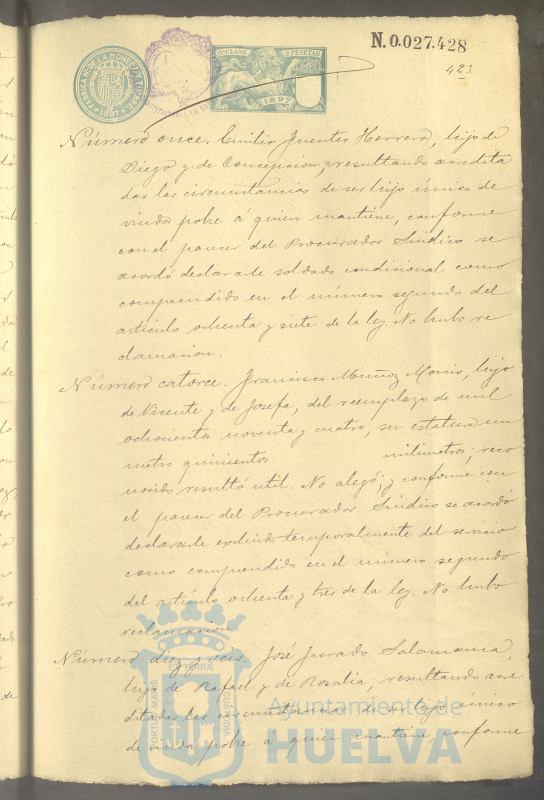 N.0.027.428
423
FABRICA N. DE LA MONEDA Y TIMBRE
1897
CLASE 2 PESETAS
1897
Número once. Emilio Fuentes Herrera, hijo de
Diego y de Concepcion, resultando acredita
das las circunstancias de ser hijo único de
viuda pobre á quien mantiene, conforme
con el parecer del Procurador Sindico se
acordó declararle soldado condicional como
comprendido en el número segundo del
artículo ochenta y siete de la ley. No hubo re
clamacion.
Número catorce. Francisco Muñoz, hijo
de Vicente y de Josefa, del reemplazo de mil
ochocientos noventa y cuatro, su estatura un
metro quinientos milimetros, reco
nocido resultó util. No alegó, y conforme con
el parecer del Procurador Sindico se acordó
declararle excluido temporalmente del servicio
como comprendido en el número segundo
del artículo ochenta y tres de la ley. No hubo
reclamacion
Número diez y seis. José Jurado Salamanca,
hijo de Rafael y de Rosalia, resultando acre
ditadas las circunstancias de ser hijo único
de viuda pobre á quien mantiene, conforme
PORTUS MARIS ET TERRÆ CUSTODIA
Ayuntamiento de
HUELVA